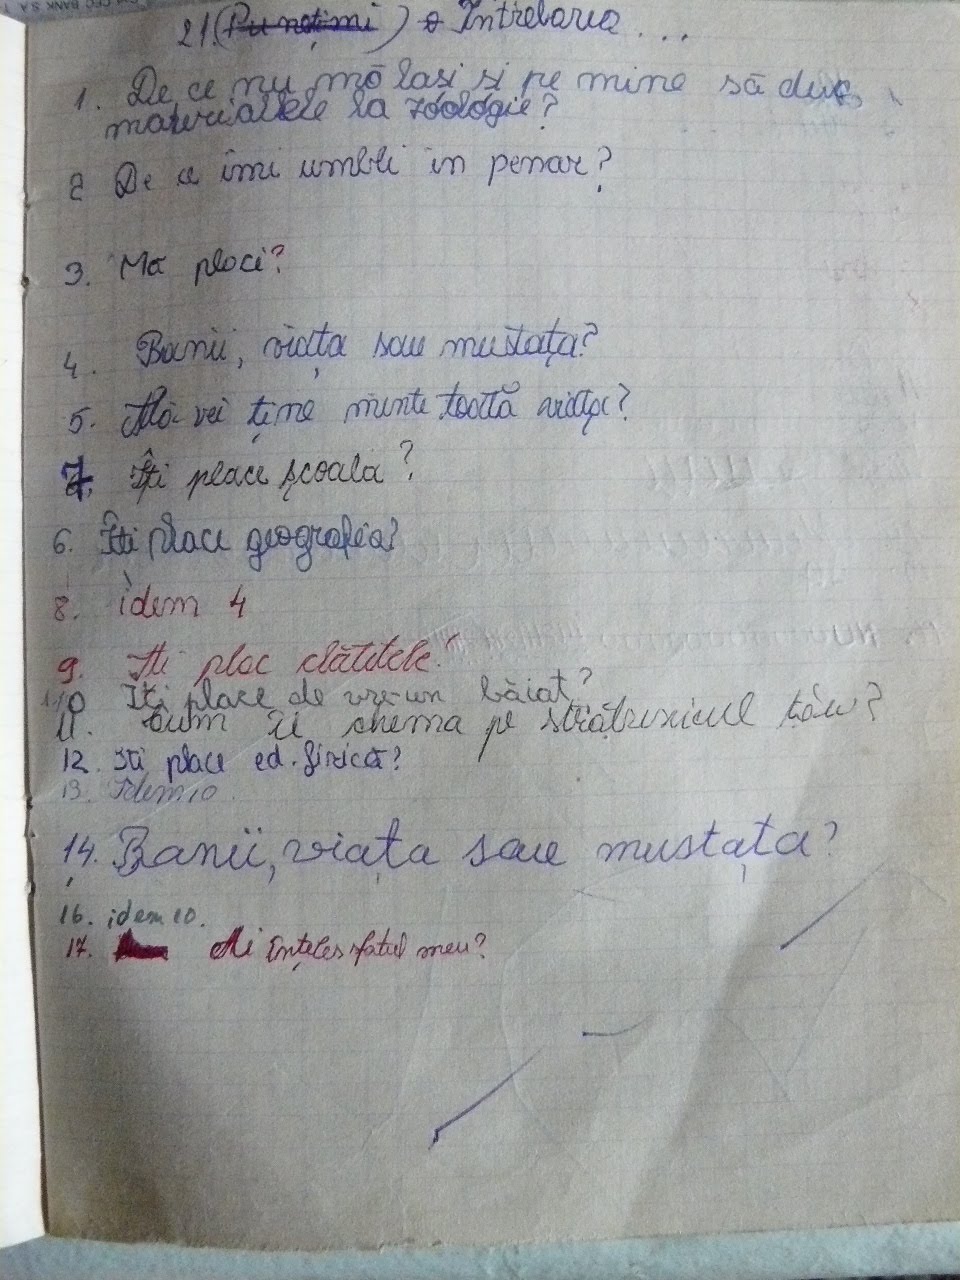 21. (Pu nețimi) o Întrebarea ...
1. De ce nu mă lași și pe mine să duc
materialele la zoologie?
2 De ce îmi umbli în penar?
3. Mă placi?
4. Banii, viața sau mustața?
5. Mă vei ține minte toată viața?
7. Îți place școala?
6. Îți place geografia?
8. idem 4
9. Îți plac clătitele?
10 Iți place de vre-un băiat?
11. Cum îl chema pe străbunicul tău?
12. Iti place ed. fizică?
13. Idem 10.
14. Banii, viața sau mustața?
16. idem 10.
17. Ai înțeles sfatul meu?